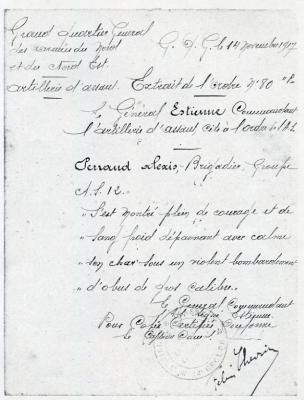 Grand Quartier Général
des armées du Nord
et du Nord Est.
G. Q. G. le 14 Novembre 1917
Artillerie d'assaut. Extrait de l'Ordre N° 80
Le Général Estienne Commandant
l'Artillerie d'assaut cite à l'ordre de l'A.
Perraud Alexis, Brigadier, Groupe
A.S. 12.
"S'est montré plein de courage et de
"sang froid dépannant avec calme
"son char sous un violent bombardement
"d'obus de gros calibre.
Le Général Commandant
Signé Estienne.
Pour Copie Certifiée Conforme
Le Capitaine